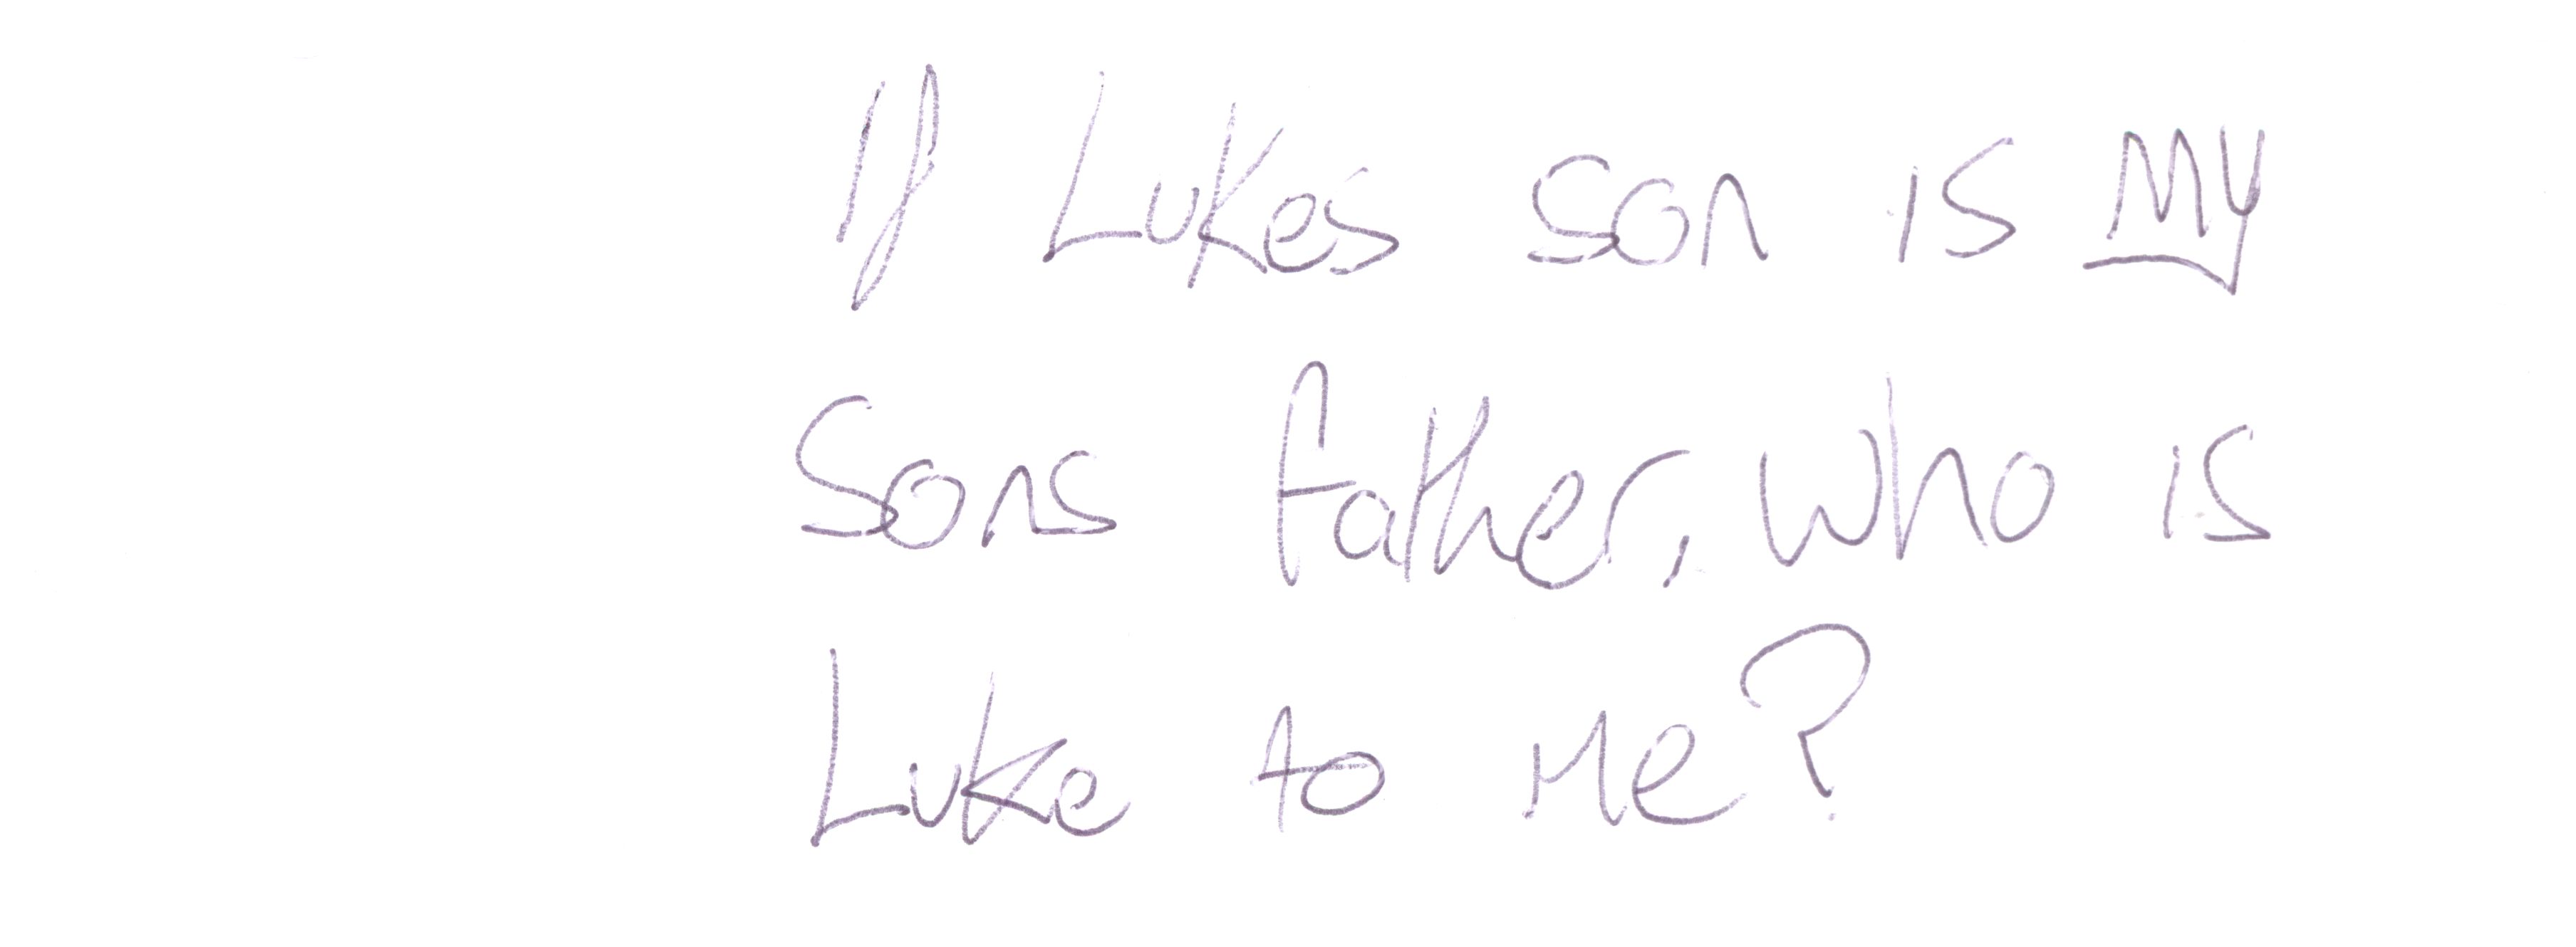 If Luke's son is My
Sons father, who is
Luke to Me?